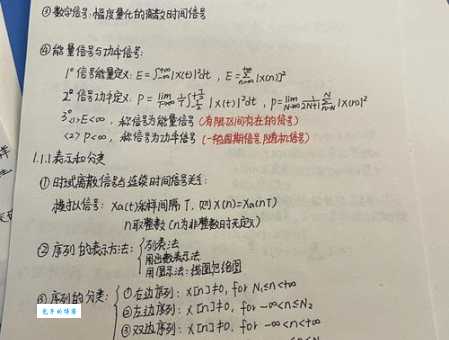 ③ 数字信号: 幅度量化的离散时间信号
④ 能量信号与功率信号:
1° 信号能量定义: E = ∫_{-∞}^{+∞} |x(t)|² dt , E = Σ_{n=-∞}^{+∞} |x(n)|²
2° 信号功率定义: P = lim_{T→∞} 1/T ∫_{-T/2}^{+T/2} |x(t)|² dt , P = lim_{N→∞} 1/(2N+1) Σ_{n=-N}^{N} |x(n)|²
3° <1> E<∞ , 称信号为能量信号 (有限区间存在的信号)
<2> P<∞ , 称信号为功率信号 (一般周期信号,随机信号)
1.1.1 表示和分类
① 时域离散信号与连续时间信号关系:
模拟信号: xa(t)采样间隔 T, 则 x(n)=xa(nT)
n取整数 (n为非整数时无定义)
② 序列的表示方法: { 列表法
用函数表示法
用图示法: 线图
③ 序列的分类: { ① 右边序列: x[n]≠0, for N₁≤n<+∞
② 左边序列: x[n]≠0, for -∞<n≤N₂
③ 双边序列: x[n]≠0, for -∞<n<+∞